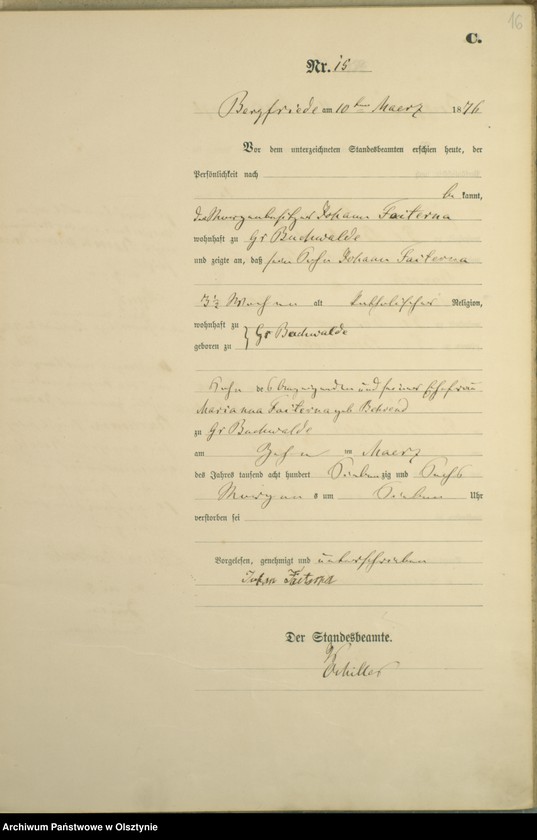 16
C.
Nr. 15
Bergfriede am 10ten Maerz 1876
Vor dem unterzeichneten Standesbeamten erschien heute, der
Persönlichkeit nach
be kannt,
Johann Faiterna
wohnhaft zu Gr Buchwalde
und zeigte an, daß sein Sohn Johann Faiterna
3½ Wochen alt katholischer Religion,
wohnhaft zu
geboren zu } Gr Buchwalde
Sohn des Anzeigenden und seiner Ehefrau
Marianna Faiterna geb Behrend
zu Gr Buchwalde
am Zehn ten Maerz
des Jahres tausend acht hundert Siebenzig und Sechs
Morgen s um Sieben Uhr
verstorben sei
Vorgelesen, genehmigt und unterschrieben
Der Standesbeamte.
Schiller
Archiwum Państwowe w Olsztynie